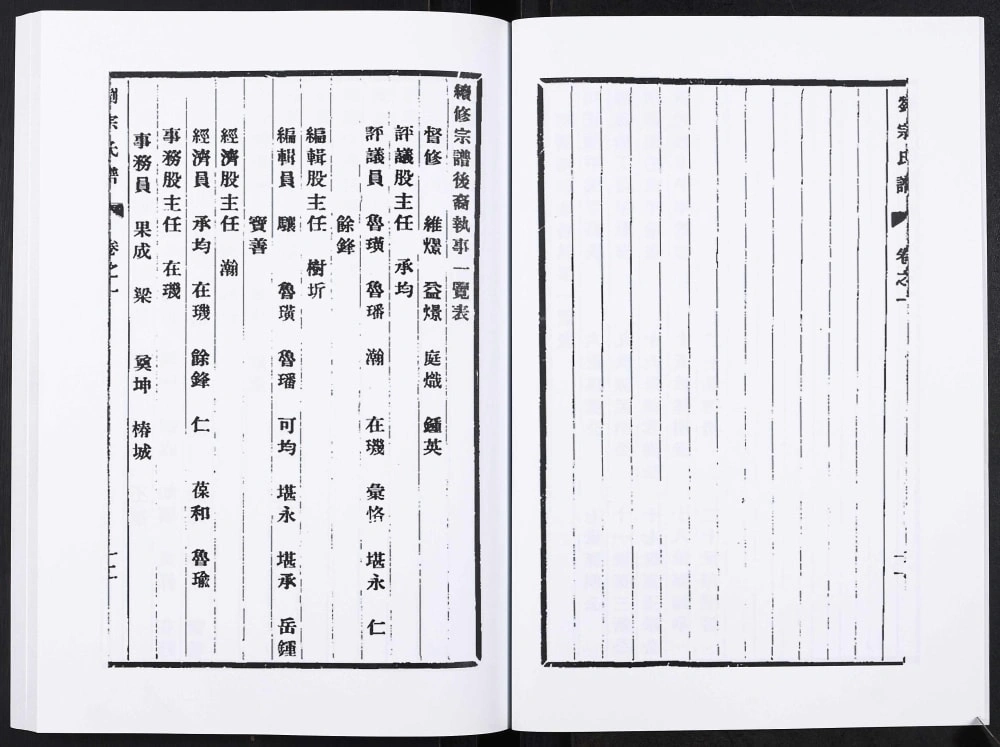 宗氏譜
卷之一
續修宗譜後裔執事一覽表
督修 維燝 益燝 庭熾 鍾英
評議股主任 承均
評議員 魯璜 魯璠 瀚 在璣 彙恪 堪永 仁
餘鋒
編輯股主任 樹圻
編輯員 驤 魯璜 魯璠 可均 堪永 堪承 岳鍾
寶善
經濟股主任 瀚
經濟員 承均 在璣 餘鋒 仁 葆和 魯瑜
事務股主任 在璣
事務員 果成 梁 奠坤 椿城
宗氏譜 卷之一